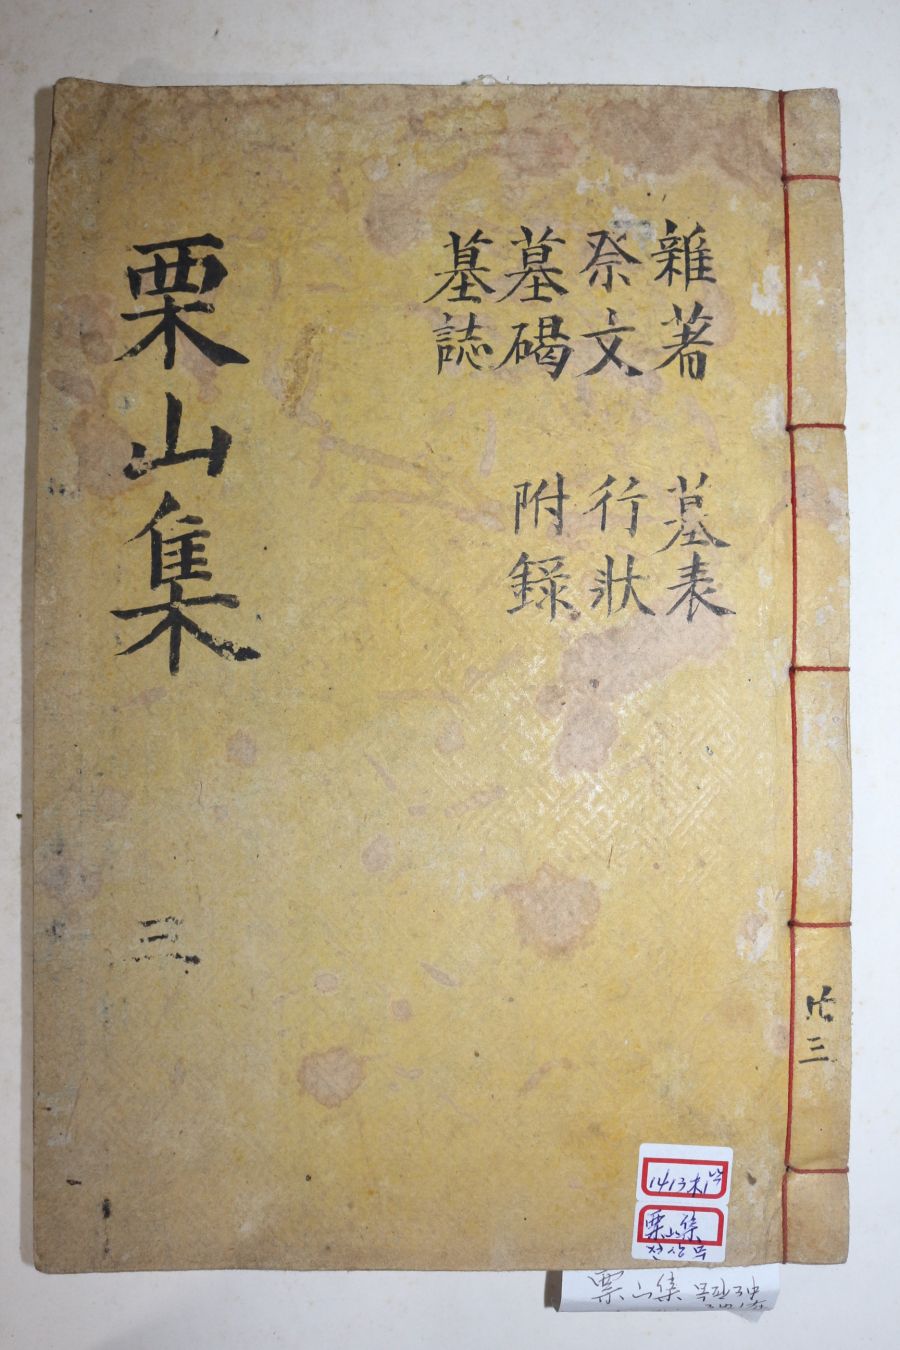 雜著
祭文
墓碣
墓誌
墓表
行狀
附錄
栗山集
三
共三
1413
栗山集
栗山集